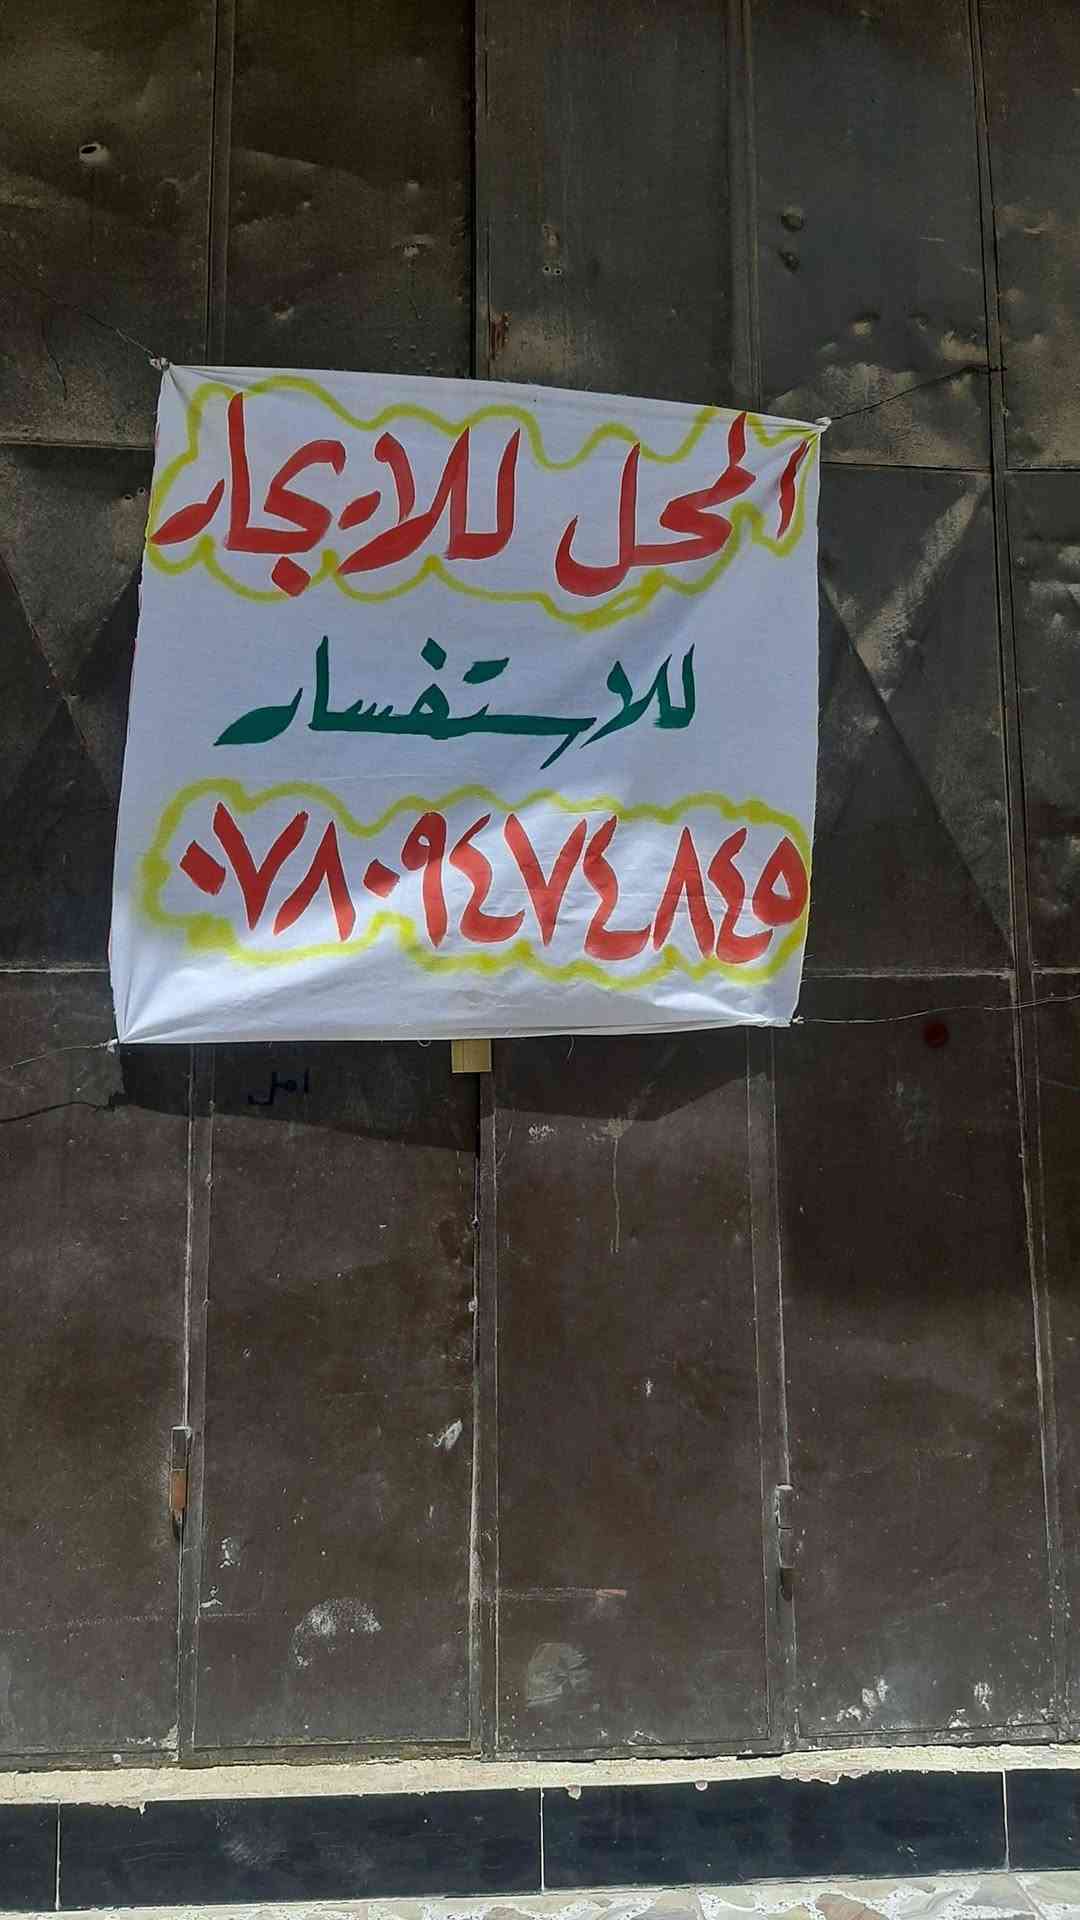 المحل للايجار
للاستفسار
٠٧٨٠٩٤٧٤٨٤٥